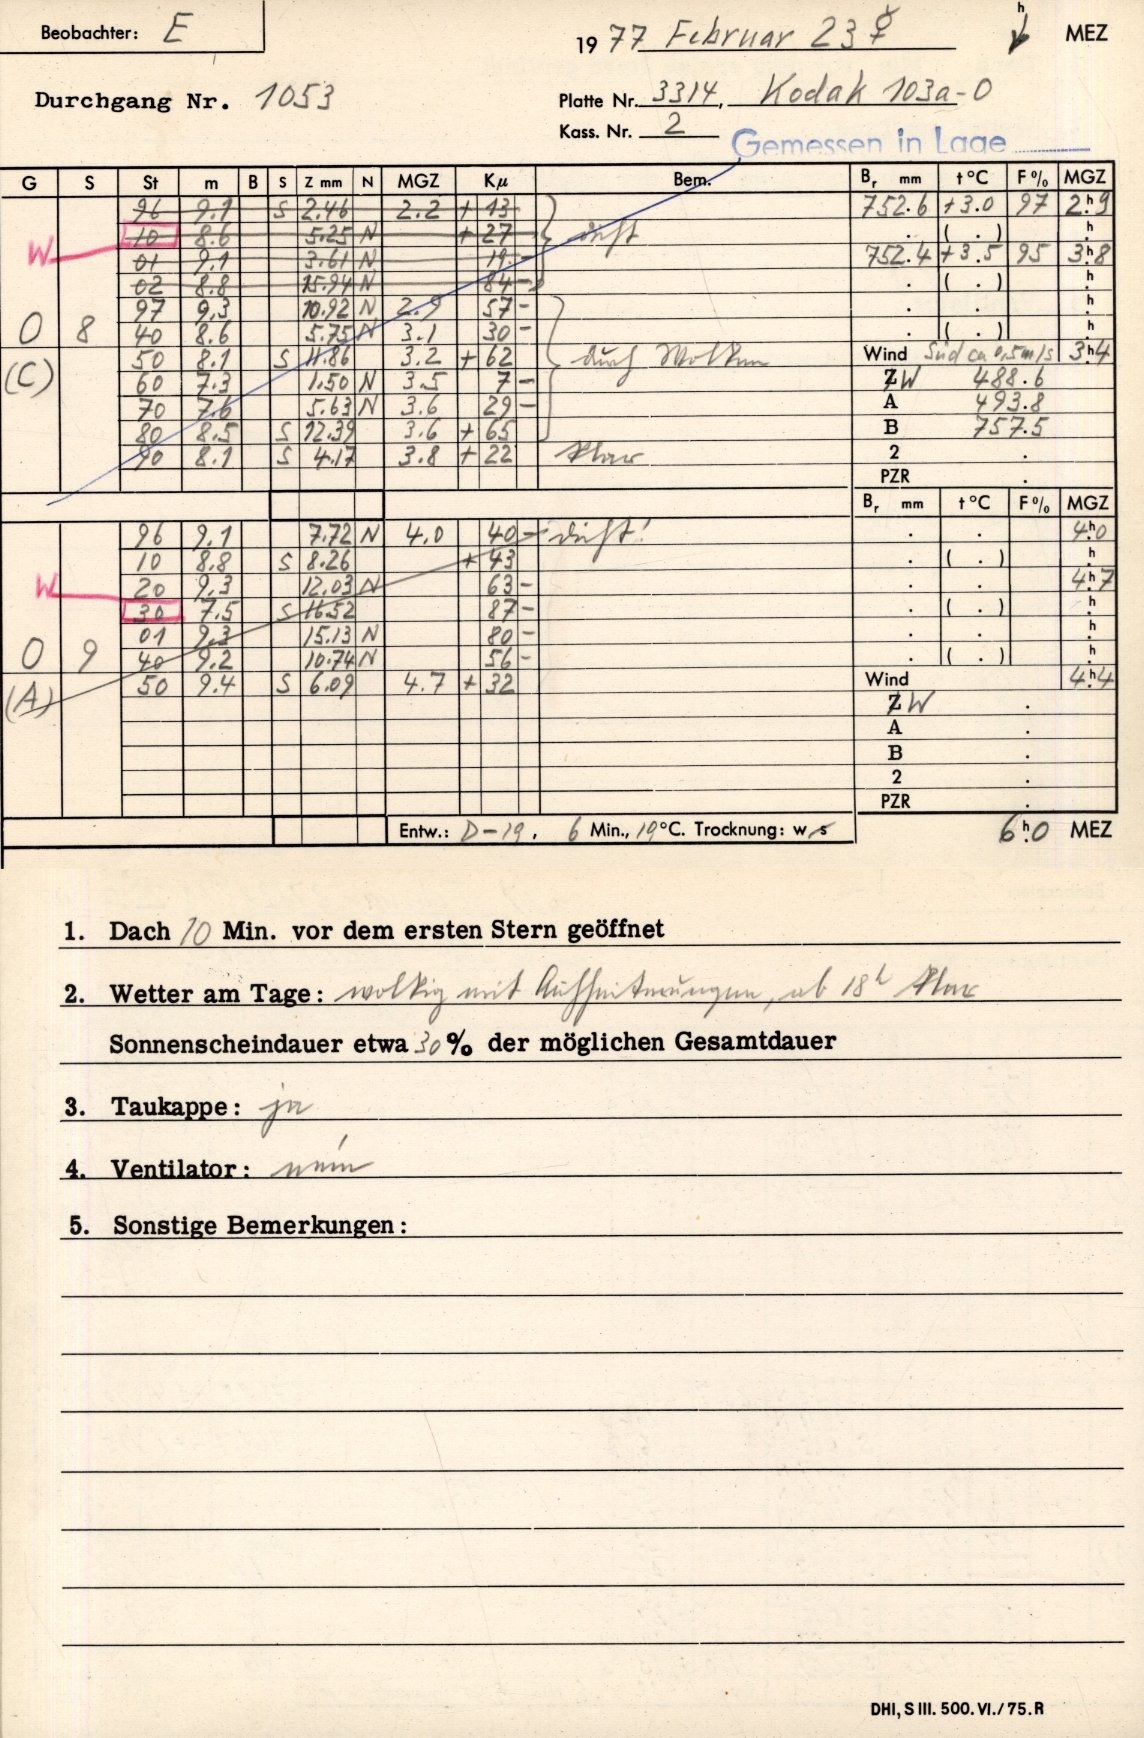 Beobachter: E
1977 Februar 23 ☿ h MEZ
Durchgang Nr. 1053
Platte Nr. 3314, Kodak 103a-O
Kass. Nr. 2
Gemessen in Lage
G S St m B S Z mm N MGZ Kμ Bem. Br mm t °C F % MGZ
96 9.1 S 2.46 2.2 + 13 752.6 +3.0 97 2h9
10 8.6 5.25 N + 27 dicht . ( . ) h
W 01 9.1 3.61 N 19 - 752.4 +3.5 95 3h8
02 8.8 15.94 N 84 - . ( . ) h
97 9.3 10.92 N 2.9 57 - . . h
0 8 40 8.6 5.75 N 3.1 30 - . ( . ) h
50 8.1 S 11.86 3.2 + 62 durch Wolken Wind Süd ca 0,5m/s 3h4
(C) 60 7.3 1.50 N 3.5 7 - Z W 488.6
70 7.6 5.63 N 3.6 29 - A 493.8
80 8.5 S 12.39 3.6 + 65 B 757.5
90 8.1 S 4.17 3.8 + 22 klar 2 .
PZR .
Br mm t °C F % MGZ
96 9.1 7.72 N 4.0 40 - dicht! . . 4h0
10 8.8 S 8.26 + 43 . ( . ) h
W 20 9.3 12.03 N 63 - . . 4h7
30 7.5 S 16.52 87 - . ( . ) h
01 9.3 15.13 N 80 - . . h
0 9 40 9.2 10.74 N 56 - . ( . ) h
(A) 50 9.4 S 6.09 4.7 + 32 Wind 4h4
Z W .
A .
B .
2 .
PZR .
Entw.: D-19, 6 Min., 19°C. Trocknung: w, s 6h0 MEZ
1. Dach 10 Min. vor dem ersten Stern geöffnet
2. Wetter am Tage: wolkig mit Aufheiterungen, ab 18h klar
Sonnenscheindauer etwa 30% der möglichen Gesamtdauer
3. Taukappe: ja
4. Ventilator: nein
5. Sonstige Bemerkungen:
DHI, S III. 500. VI./ 75. R